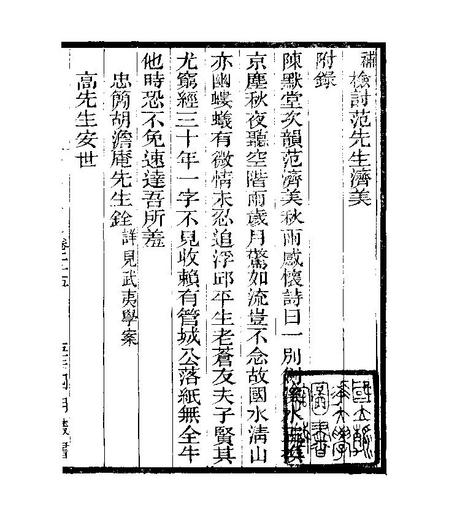 補檢討范先生濟美
附錄
陳默堂次韻范濟美秋雨感懷詩曰一別水
京塵秋夜聽空階雨歲月驚如流豈不念故國水清山
亦幽螻蟻有微情未忍追浮邱平生老蒼友夫子賢其
尤窮經三十年一字不見收賴有管城公落紙無全牛
他時恐不免速達吾所羞
忠簡胡澹庵先生銓詳見武夷學案
高先生安世
卷二十五